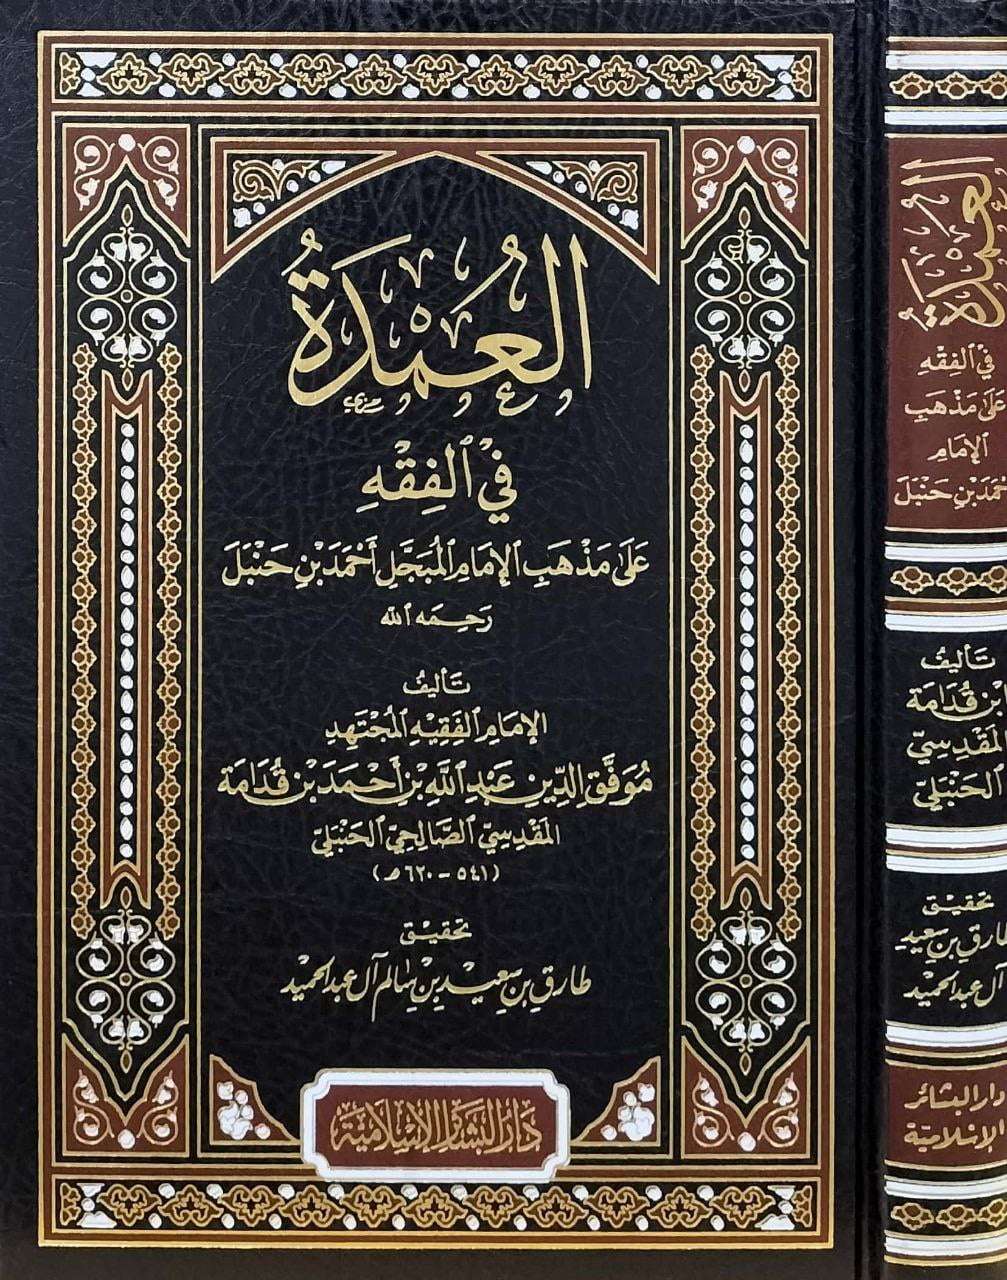 العُمْدَةُ
في الفِقْهِ
عَلَى مَذْهَبِ الإِمَامِ المُبَجَّلِ أَحْمَدَ بْنِ حَنْبَلَ
رَحِمَه الله
تَأليفُ
الإِمَامِ الفَقِيهِ المُجْتَهِدِ
مُوَفَّقِ الدِّينِ عَبْدِ اللهِ بْنِ أَحْمَدَ بْنِ قُدَامَةَ
المَقْدِسِيِّ الصَّالِحِيِّ الحَنْبَلِيِّ
(٥٤١ - ٦٢٠هـ)
تحقيق
طارق بن سعيد بن سالم آل عبد الحميد
دَارُ البَشَائِر الإِسْلَامِيَّة
العُمْدَةُ
في الفِقْهِ
عَلَى مَذْهَبِ
الإِمَامِ
أَحْمَدَ بْنِ حَنْبَلَ
تَأليفُ
ابْنِ قُدَامَةَ
المَقْدِسِيِّ
الحَنْبَلِيِّ
تحقيق
طارق بن سعيد
آل عبد الحميد
دار البشائر
الإسلامية